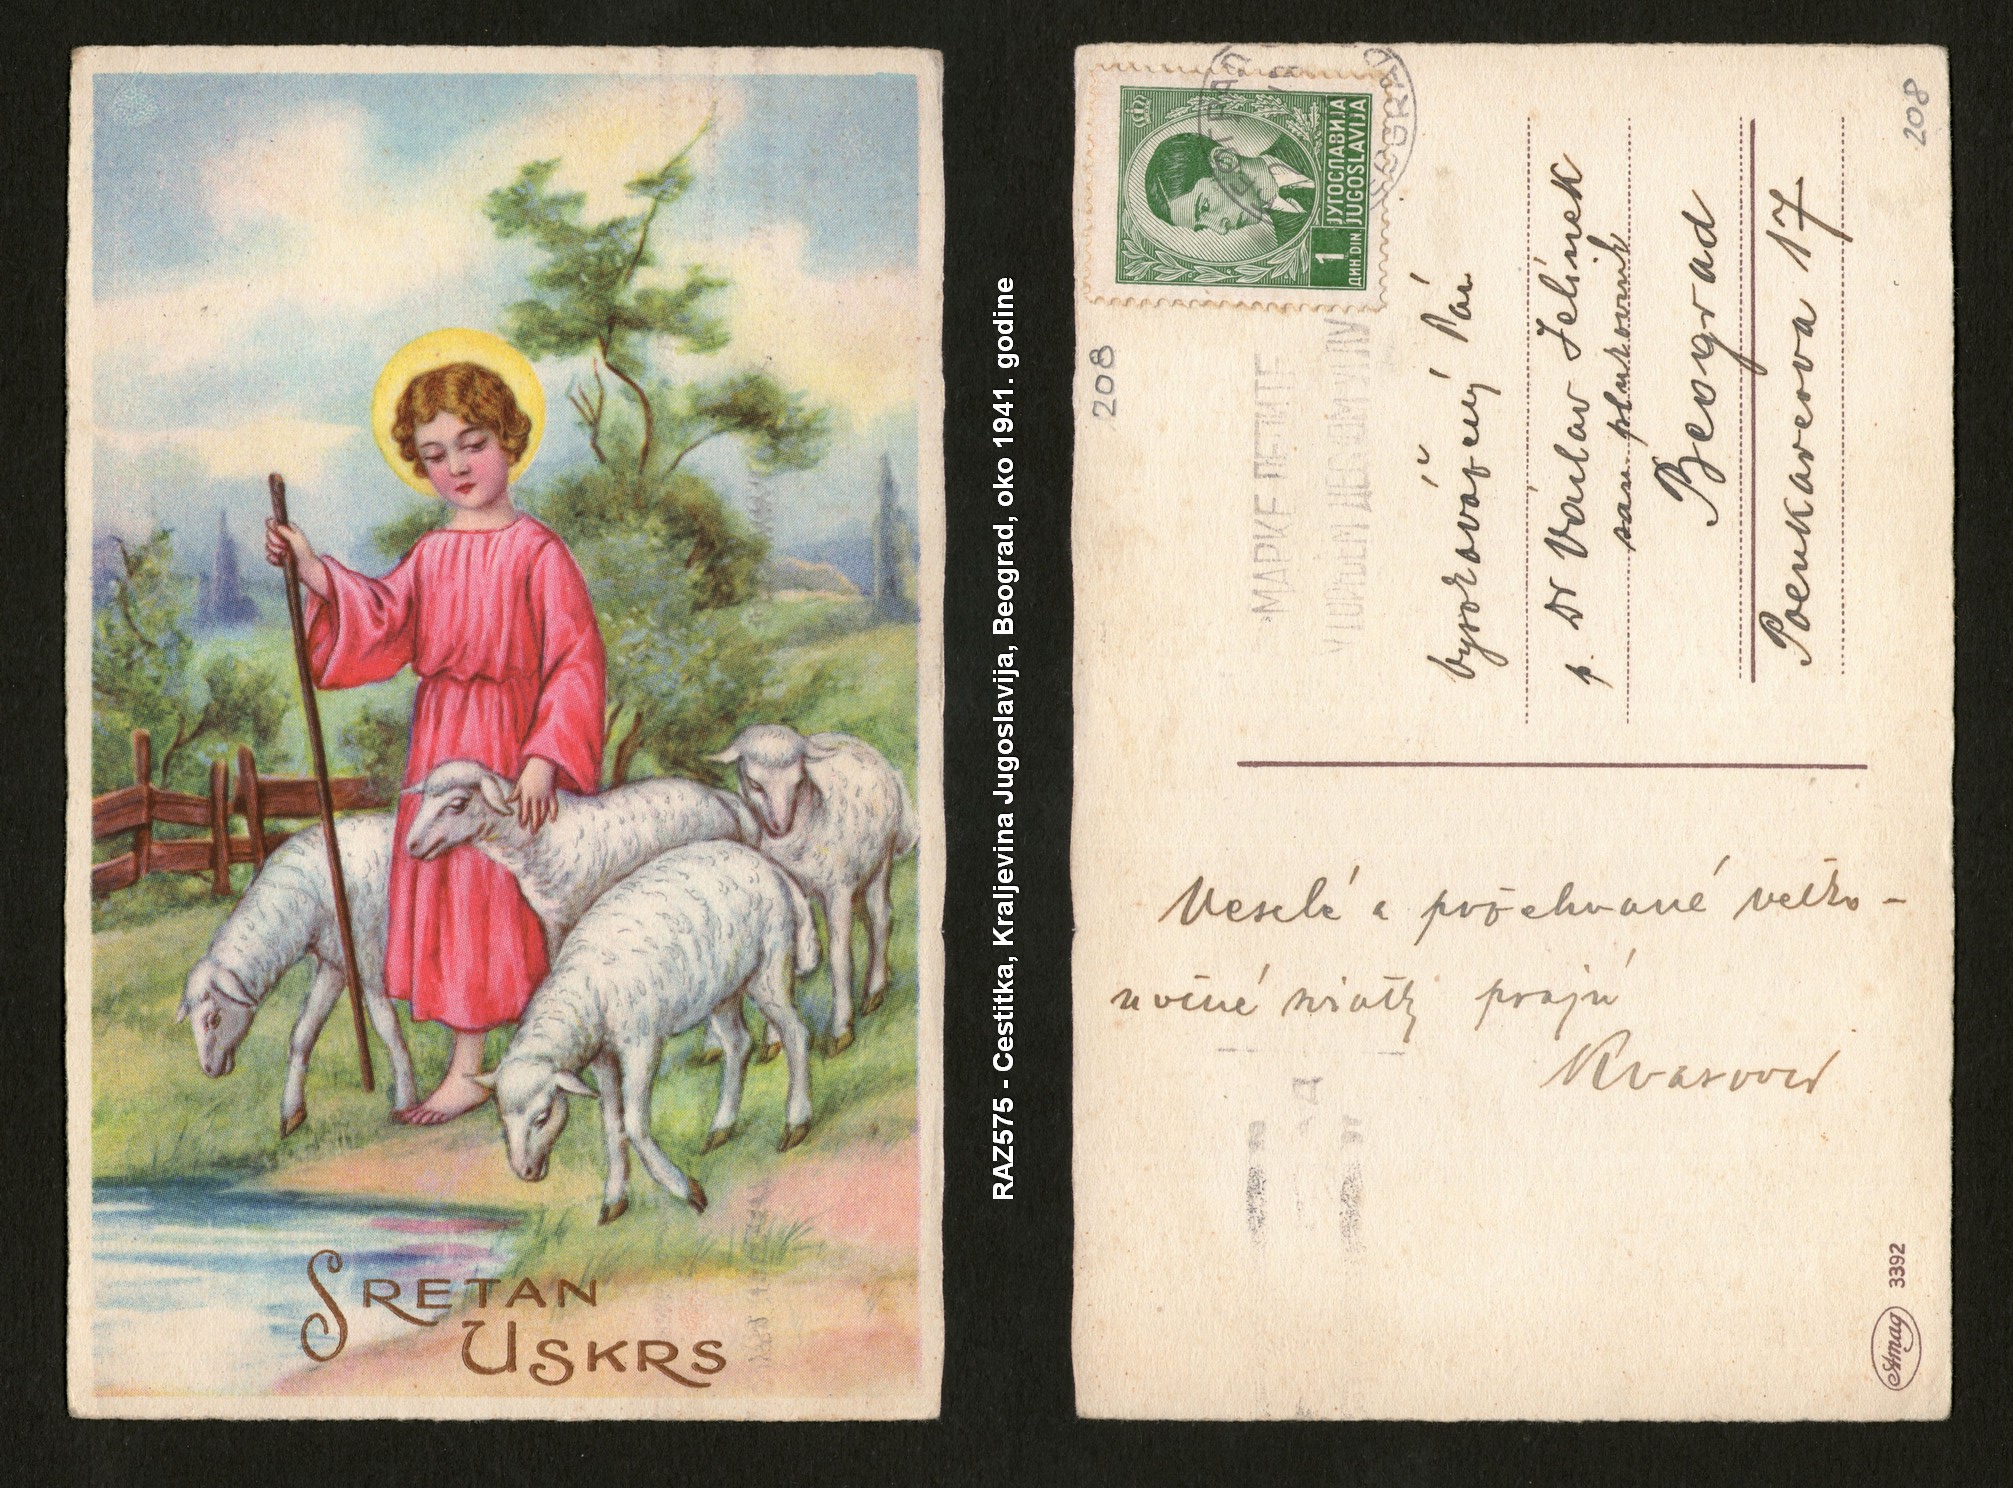 SRETAN
USKRS
RAZ575 - Cestitka, Kraljevina Jugoslavija, Beograd, oko 1941. godine
208
208
1
ДИН. DIN
ЈУГОСЛАВИЈА
JUGOSLAVIJA
БЕОГРАД
BEOGRAD
МАРКЕ ЛЕПИТЕ
У ГОРЊЕМ ДЕСНОМ УГЛУ
Vysokovážený Pán
p. Dr Václav Jelínek
san. plukovník
Beograd
Poenkareova 17
Veselé a požehnané velko-
nočné sviatky prajú
Kvasovci
Amag
3392